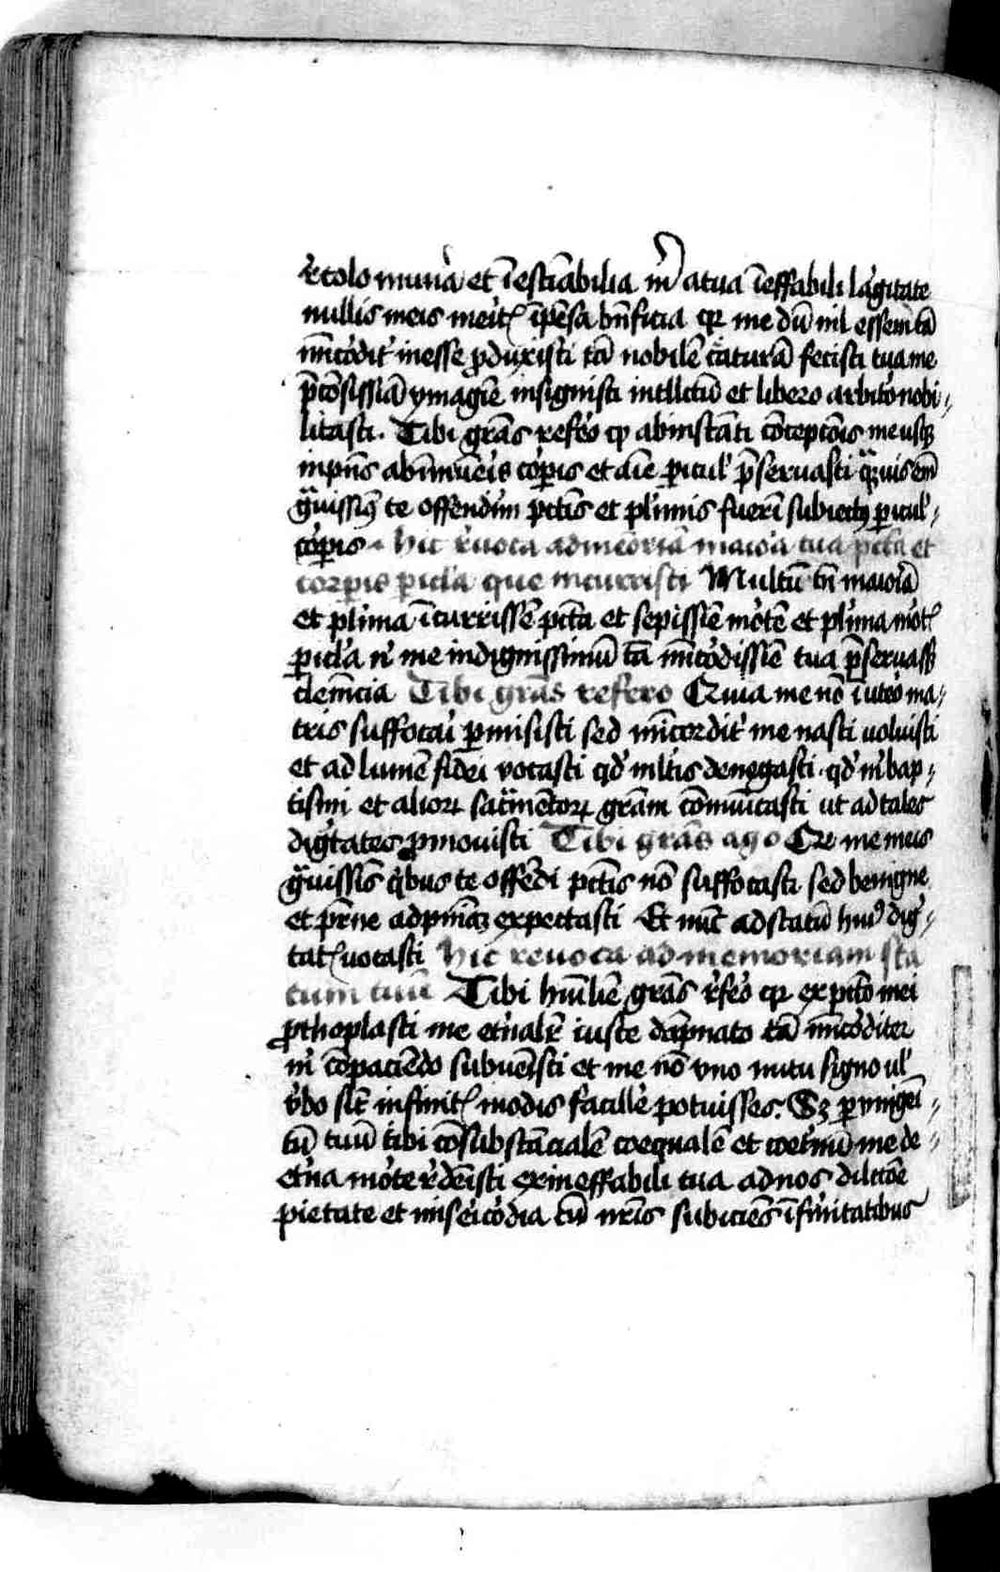 r̄colo mun̄a et īestīabilia m̄ atua īeffabili lagitate
nullis meis meit̄ īpēsa bn̄ficia qr me dū nil essem tā
mīcodit̄ inesse produxisti tā nobilē c̄aturā fecisti tua me
p̄cōsissiā ymagīe insignisti intllctū et libero arbitō nobi
litasti. Tibi grās refeō qꝫ abinstāti cōceptōis me usqꝫ
inpn̄s abīnuēis cōpis et aīe picul̓ p̄seruasti qꝫuis em̄
gͣuissīs te offendīm pctīs et pl̓imis fuerī subiectꝰ picul̓
cōpis . hic r̄uoca admēoriā maiōa tua pctā et
corpis picl̓a que incurristi Multū tn̄ maiōa
et pl̓ima īcurrissē pctā et sepissīe mōtē et pl̓ima mōt̄
picl̓a n̄ me indignissimū tā mīcodissīe tua p̄seruassꝫ
clemēcia Tibi grās refero Quia me nō ī uteō ma
tris suffocai pmisisti sed mīcordit̄ me nasci uoluisti
et ad lumē fidei vocasti qd̓ ml̓tis denegasti . qd̓ m̄ bap
tismi et alioꝝ sacͣmētoꝝ grām cōmūicasti ut ad tales
dig̓tates pmouisti Tibi grās ago Qr me meis
gͣuissīs qͥbus te offēdi pctīs nō suffocasti sed benigne
et pr̄ne ad pn̄iāꝫ expectasti Et nūc ad statū huiꝰ dig
tat̄ uocasti hic reuoca ad memoriam sta
tum tuū Tibi huīlīe grās r̄feō qr ex pctō mei
prthoplasti me et̓nalr̄ iuste dāpnato tā mīcoditer
m̄ cōpaciēdo subuēisti et me nō vno nutu signo ul̓
v̓bo sic̄ infinit̄ modis facille potuisses. Sꝫ p vnigēi
tū tuū tibi cōsubstācialē coequalē et coet̓nū me de
et̓na mōte r̄dēisti ex ineffabili tua ad nos dilctōe
pietate et miseicōdia cū nr̄is subiciēs īfirmitatibus